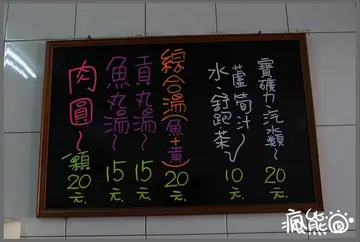 寶礦力、汽水類～20元
蘆筍汁、
水、舒跑茶～10元
綜合湯(魚+貢)20元
貢丸湯～15元
魚丸湯～15元
肉圓～一顆20元
瘋熊